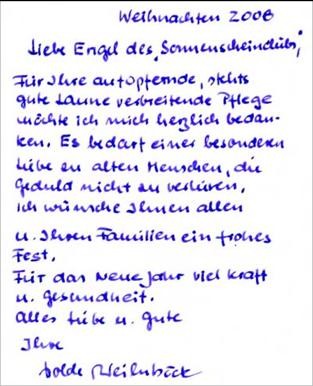 Weihnachten 2008
Liebe Engel des „Sonnenscheinclubs“
Für Ihre aufopfernde, stehts
gute Laune verbreitende Pflege
möchte ich mich herzlich bedan-
ken. Es bedarf einer besonderen
Liebe zu alten Menschen, die
Geduld nicht zu verlieren.
Ich wünsche Ihnen allen
u. Ihren Familien ein frohes
Fest.
Für das neue Jahr viel Kraft
u. Gesundheit.
Alles Liebe u. Gute
Ihre